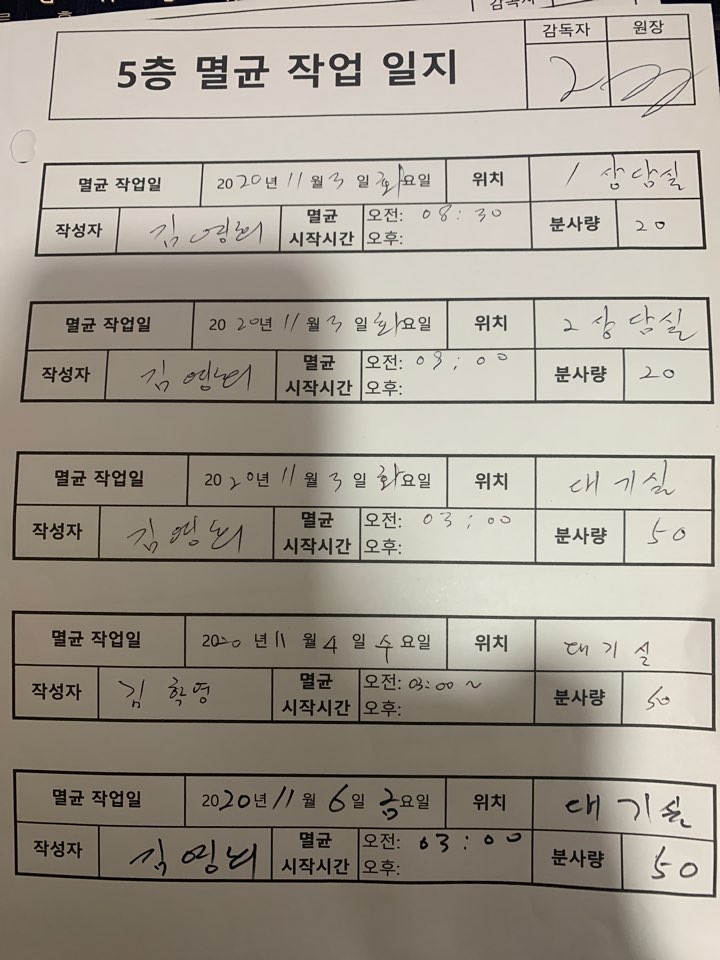 감독자 원장
5층 멸균 작업 일지
멸균 작업일 2020년 11월 3일 화요일 위치 1 상담실
작성자 멸균 시작시간 오전: 08:30 오후: 분사량 20
멸균 작업일 2020년 11월 3일 화요일 위치 2 상담실
작성자 멸균 시작시간 오전: 오후: 분사량 20
멸균 작업일 2020년 11월 3일 화요일 위치 대기실
작성자 멸균 시작시간 오전: 03:00 오후: 분사량 50
멸균 작업일 2020년 11월 4일 수요일 위치 대기실
작성자 김학영 멸균 시작시간 오전: 03:00~ 오후: 분사량 50
멸균 작업일 2020년 11월 6일 금요일 위치 대기실
작성자 멸균 시작시간 오전: 03:00 오후: 분사량 50